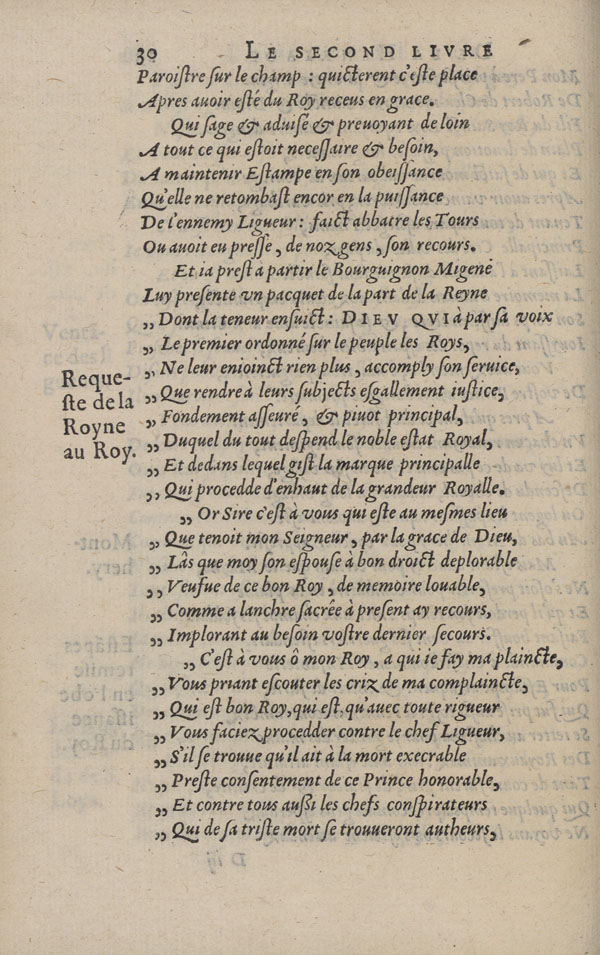 30 LE SECOND LIVRE
Paroiſtre ſur le champ : quicterent c'eſte place
Apres auoir eſté du Roy receus en grace.
Qui ſage & aduiſé & preuoyant de loin
A tout ce qui eſtoit neceſſaire & beſoin,
A maintenir Eſtampe en ſon obeiſſance
Qu'elle ne retombaſt encor en la puiſſance
De l'ennemy Ligueur : faict abbatre les Tours
Ou auoit eu preſſe, de noz gens, ſon recours.
Et ia preſt a partir le Bourguignon Migené
Luy preſente vn pacquet de la part de la Reyne
„ Dont la teneur enſuict : DIEV QVI à par ſa voix
„ Le premier ordonné ſur le peuple les Roys,
„ Ne leur enioinct rien plus, accomply ſon ſeruice,
„ Que rendre à leurs ſubjects eſgallement iuſtice,
„ Fondement aſſeuré, & piuot principal,
„ Duquel du tout deſpend le noble eſtat Royal,
„ Et dedans lequel giſt la marque principalle
„ Qui procedde d'enhaut de la grandeur Royalle.
„ Or Sire c'eſt à vous qui eſte au meſmes lieu
„ Que tenoit mon Seigneur, par la grace de Dieu,
„ Lâs que moy ſon eſpouſe à bon droict deplorable
„ Veufue de ce bon Roy, de memoire louable,
„ Comme a lanchre ſacrée à preſent ay recours,
„ Implorant au beſoin voſtre dernier ſecours.
„ C'eſt à vous ô mon Roy, a qui ie fay ma plaincte,
„ Vous priant eſcouter les criz de ma complaincte,
„ Qui eſt bon Roy, qui eſt, qu'auec toute rigueur
„ Vous faciez procedder contre le chef Ligueur,
„ S'il ſe trouue qu'il ait à la mort execrable
„ Preſte conſentement de ce Prince honorable,
„ Et contre tous auſſi les chefs conſpirateurs
„ Qui de ſa triſte mort ſe trouueront autheurs,
Reque-
ſte de la
Royne
au Roy.